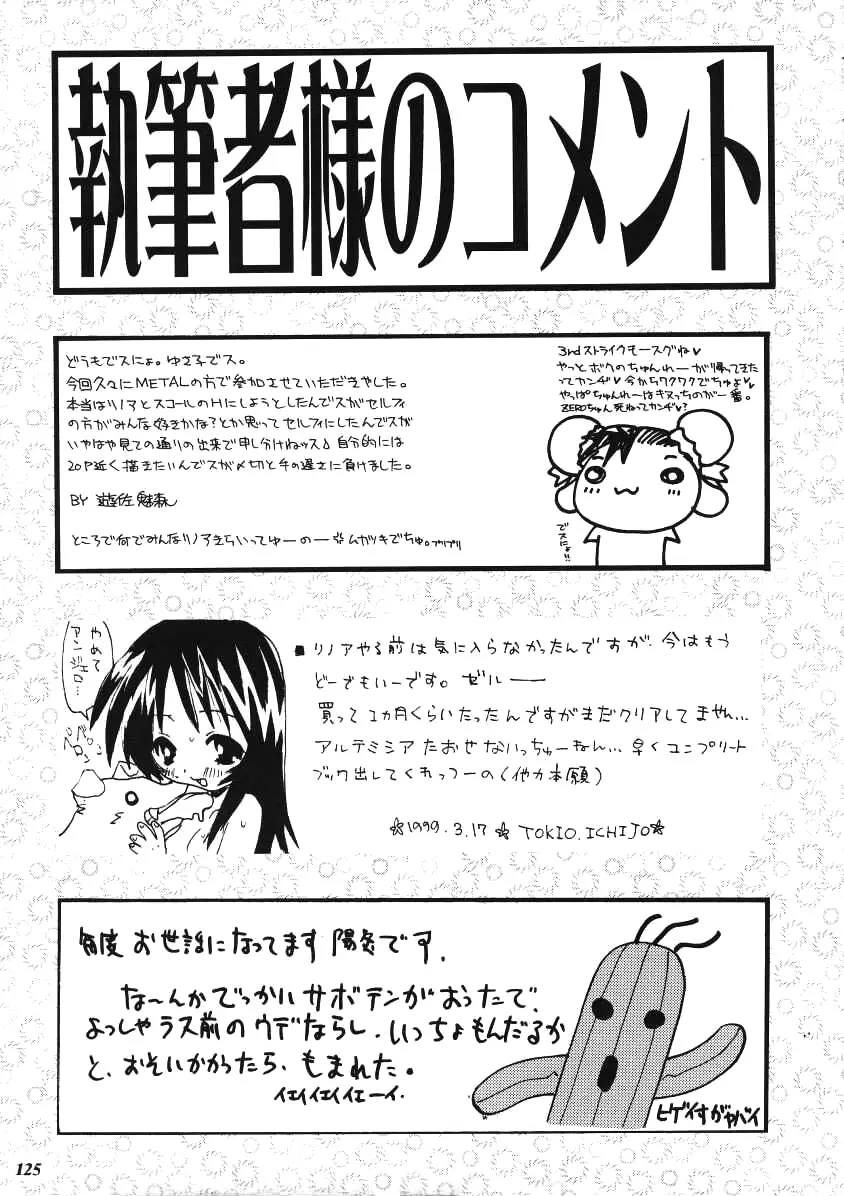 執筆者様のコメント
どうもでスにょ。ゆさ子でス。
今回久々にMETALの方で参加させていただきやした。
本当はリノアとスコールのHにしようとしたんでスがセルフィ
の方がみんな好きかな?とか思ってセルフィにしたんでスが
いやはや見ての通りの出来で申し分けねッス♪自分的には
20P近く描きたいんでスが〆切と手の遅さに負けました。
BY 遊佐魅森
ところで何でみんなリノアきらいってゆーのー☆ムカツキでちゅ。プリプリ
3rdストライクもースグね♥
やっとボクのちゅんれーが帰ってきた
ってカンヂ♥今からワクワクでちゅよ♥
やっぱちゅんれーはキヌっちのが一番。
ZEROちゅん死ねってカンヂ♥?
でスにょ!!
やめて
アンジェロ…
ペロン
ペロン
■リノアやる前は気に入らなかったんですが、今はもう
どーでもいーです。ゼルー
買って1カ月くらいたったんですがまだクリアしてません…
アルテミシアたおせないっちゅーねん…早くコンプリート
ブック出してくれっつーの(他力本願)
☆1999.3.17☆ TOKIO.ICHIJO☆
毎度お世話になってます 陽炎です。
な〜んかでっかいサボテンがおったで、
よっしゃラス前のウデならし、いっちょもんだるか
と、おそいかかったら、もまれた。
イエイイエイイエーイ.
ヒゲイすがヤバイ
125